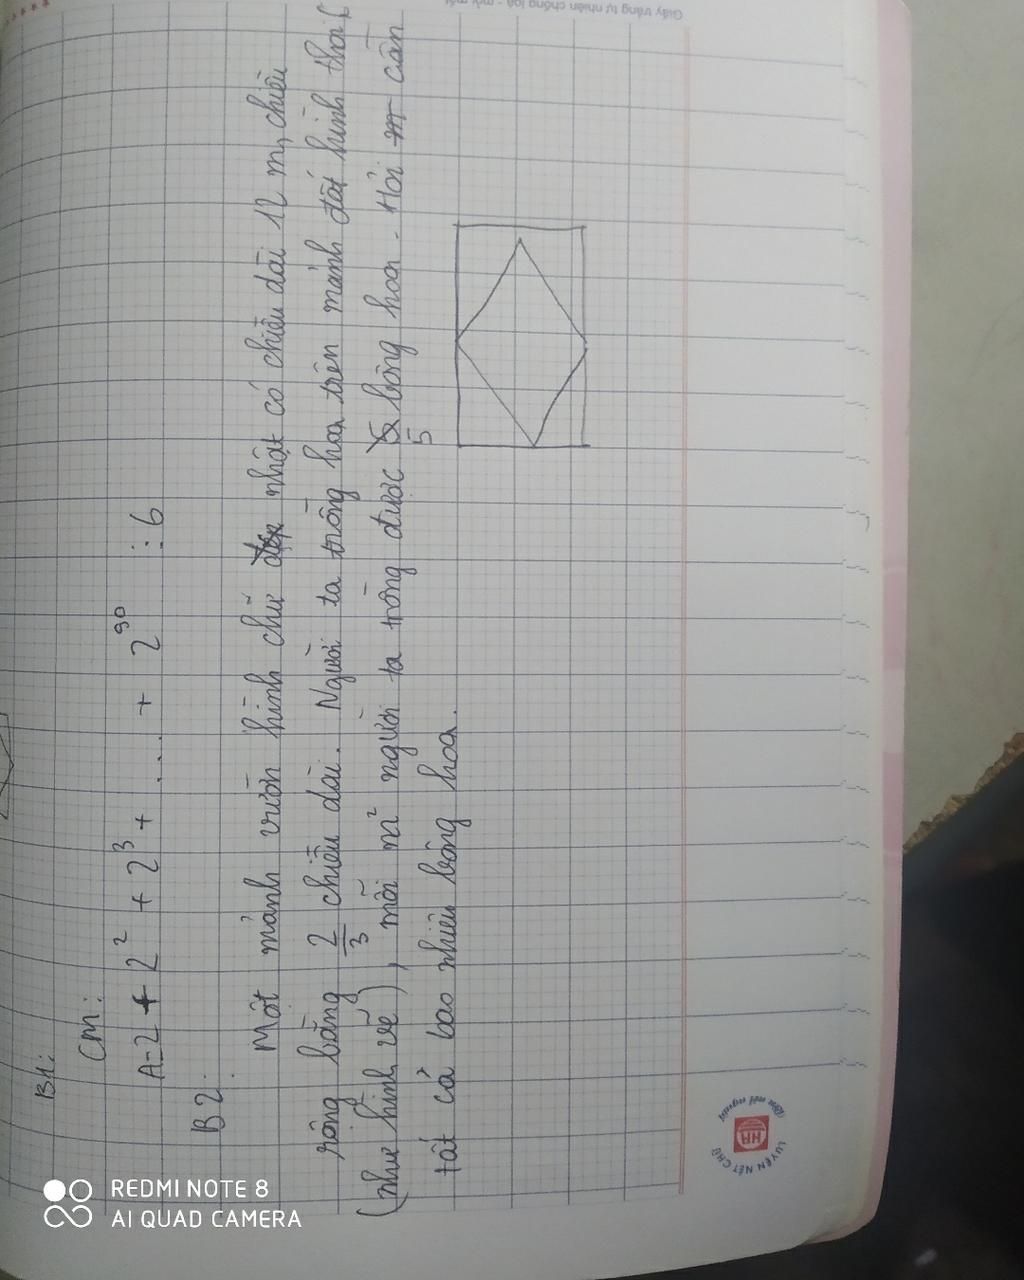 B1:
Cm:
A=2 + 2² + 2³ + .... + 2⁹⁰ ⋮ 6
B2:
Một mảnh vườn hình chữ nhật có chiều dài 12 m, chiều
rộng bằng 2/3 chiều dài. Người ta trồng hoa trên mảnh đất hình thoi
(như hình vẽ), mỗi m² người ta trồng được 5 bông hoa. Hỏi cần
tất cả bao nhiêu bông hoa.
Giấy trắng tự nhiên chống loá - mỏi mắt
LUYỆN NÉT CHỮ
Rèn nết người
HH
REDMI NOTE 8
AI QUAD CAMERA